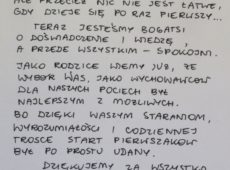 ALE PRZECIEŻ NIC NIE JEST ŁATWE,
GDY DZIEJE SIĘ PO RAZ PIERWSZY...
TERAZ JESTEŚMY BOGATSI
O DOŚWIADCZENIE I WIEDZĘ,
A PRZEDE WSZYSTKIM – SPOKOJNI.
JAKO RODZICE WIEMY JUŻ, ŻE
WYBÓR WAS, JAKO WYCHOWAWCÓW
DLA NASZYCH POCIECH BYŁ
NAJLEPSZYM Z MOŻLIWYCH.
BO DZIĘKI WASZYM STARANIOM,
WYROZUMIAŁOŚCI I CODZIENNEJ
TROSCE START PIERWSZAKÓW
BYŁ PO PROSTU UDANY.
DZIĘKUJEMY ZA WSZYSTKO